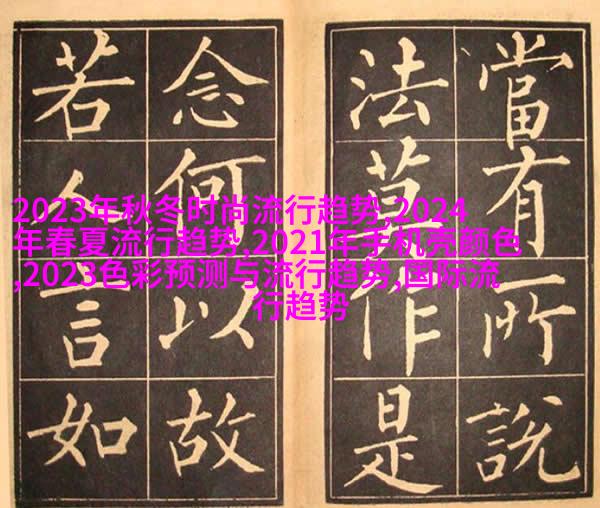 當有所說
法莫作是
念何以故
若人言如
2023年秋冬时尚流行趋势,2024
年春夏流行趋势,2021年手机壳颜色
,2023色彩预测与流行趋势,国际流
行趋势